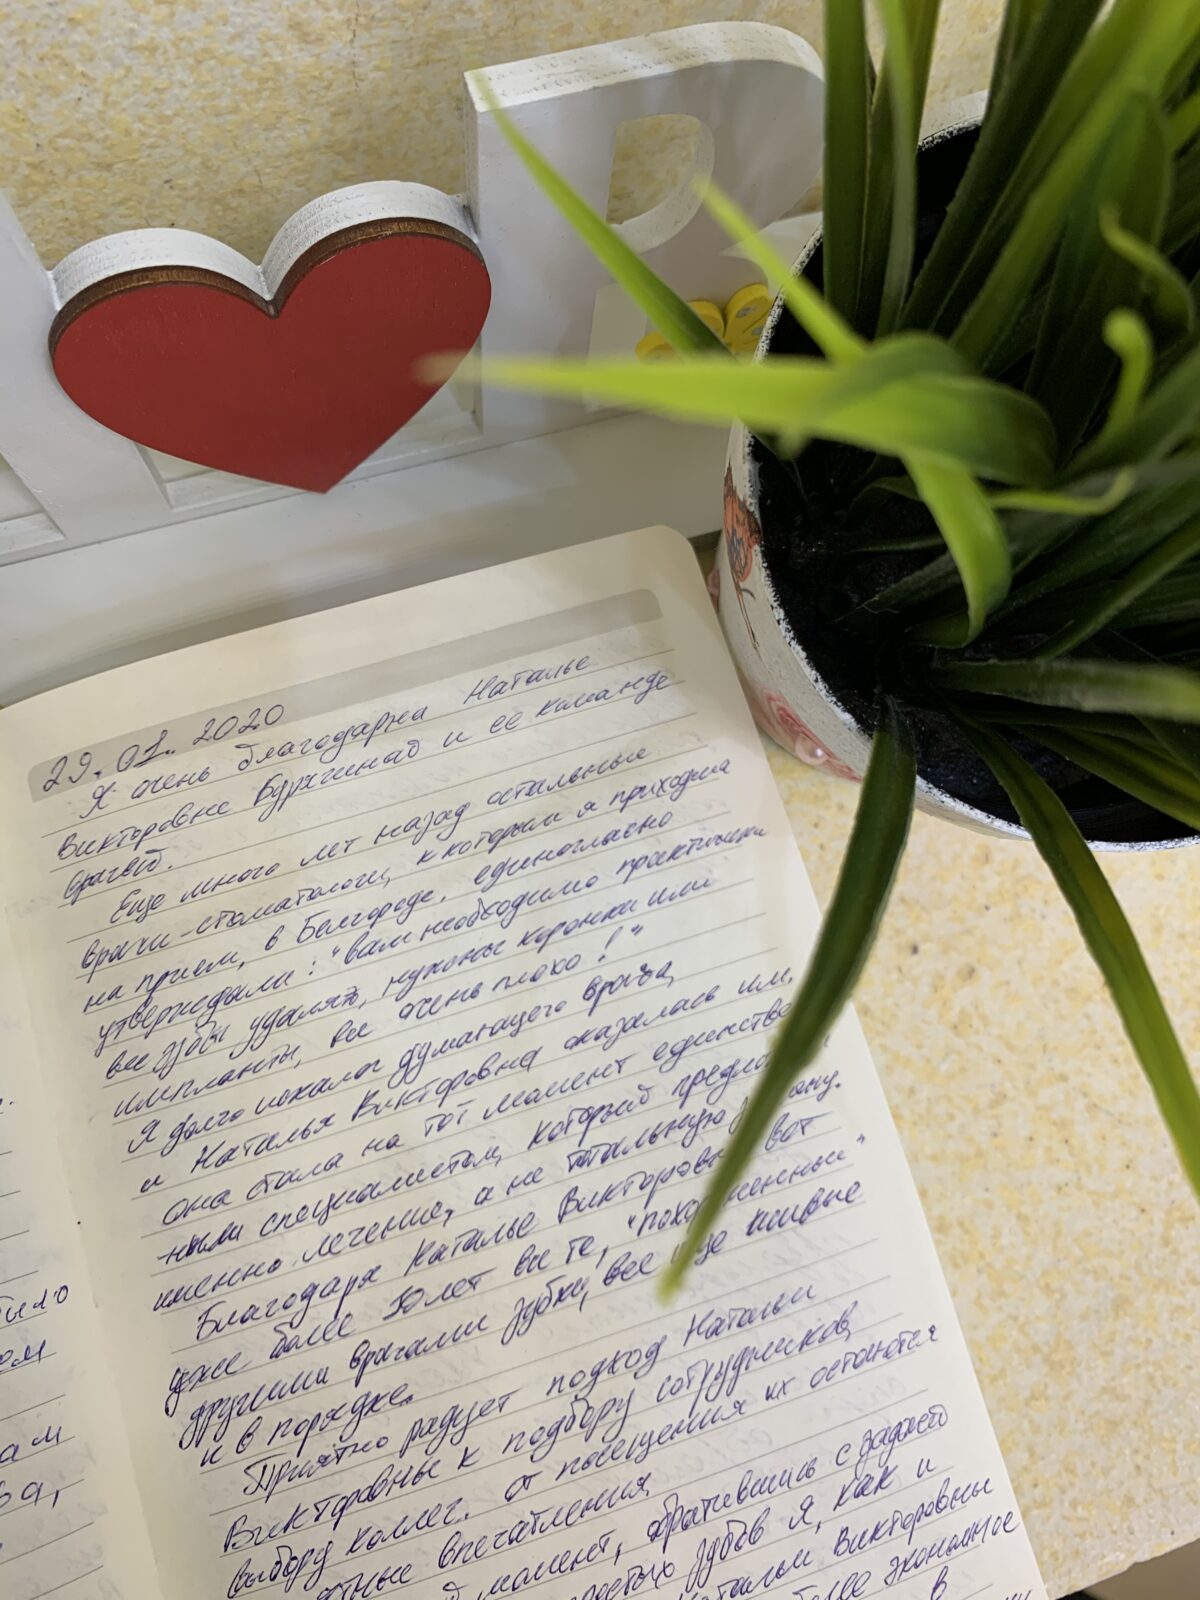 29.01.2020
Я очень благодарна Наталье
Викторовне Бурхинад и ее команде
врачей.
Еще много лет назад остальные
врачи-стоматологи, к которым я приходила
на прием, в Белгороде, единогласно
утверждали: "вам необходимо практически
все зубы удалять, нужны коронки или
импланты, все очень плохо!"
Я долго искала думающего врача,
и Наталья Викторовна оказалась им,
она стала на тот момент единстве
-нным специалистом, который предло
именно лечение, а не тотальную
Благодаря Наталье Викторовне вот
уже более 10 лет все те, "похороненные"
другими врачами зубки, все еще живые
и в порядке.
Приятно радует подход Натальи
Викторовны к подбору сотрудников,
выбору коллег. От посещения их остаются
впечатления
момент, обратившись с задачей
зубов я, как и
Натальи Викторовны
более экономное
в
было
ом
ам
ва,